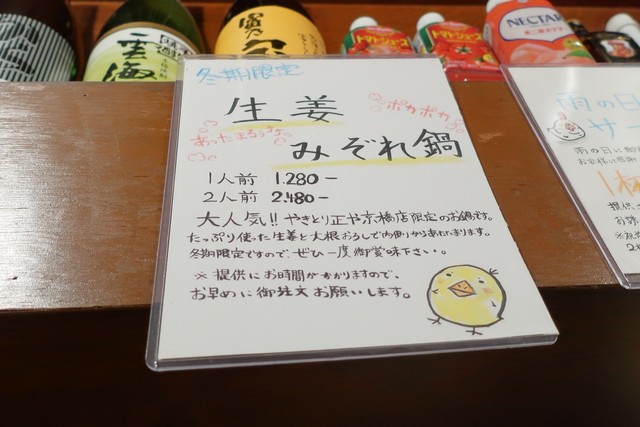 雲海
トマトジュース
トマトジュース
NECTAR
冬期限定
生姜
ポカポカ
あったまるぅぅ
みぞれ鍋
1人前 1.280-
2人前 2.480-
大人気!! やきとり正や京橋店限定のお鍋です。
たっぷり使った生姜と大根おろしで内側からあたたまります。
冬期限定ですので、ぜひ一度御賞味下さい。
※ 提供にお時間がかかりますので、
お早めに御注文お願いします。
雨の日
サー
雨の日に
1杯
提供